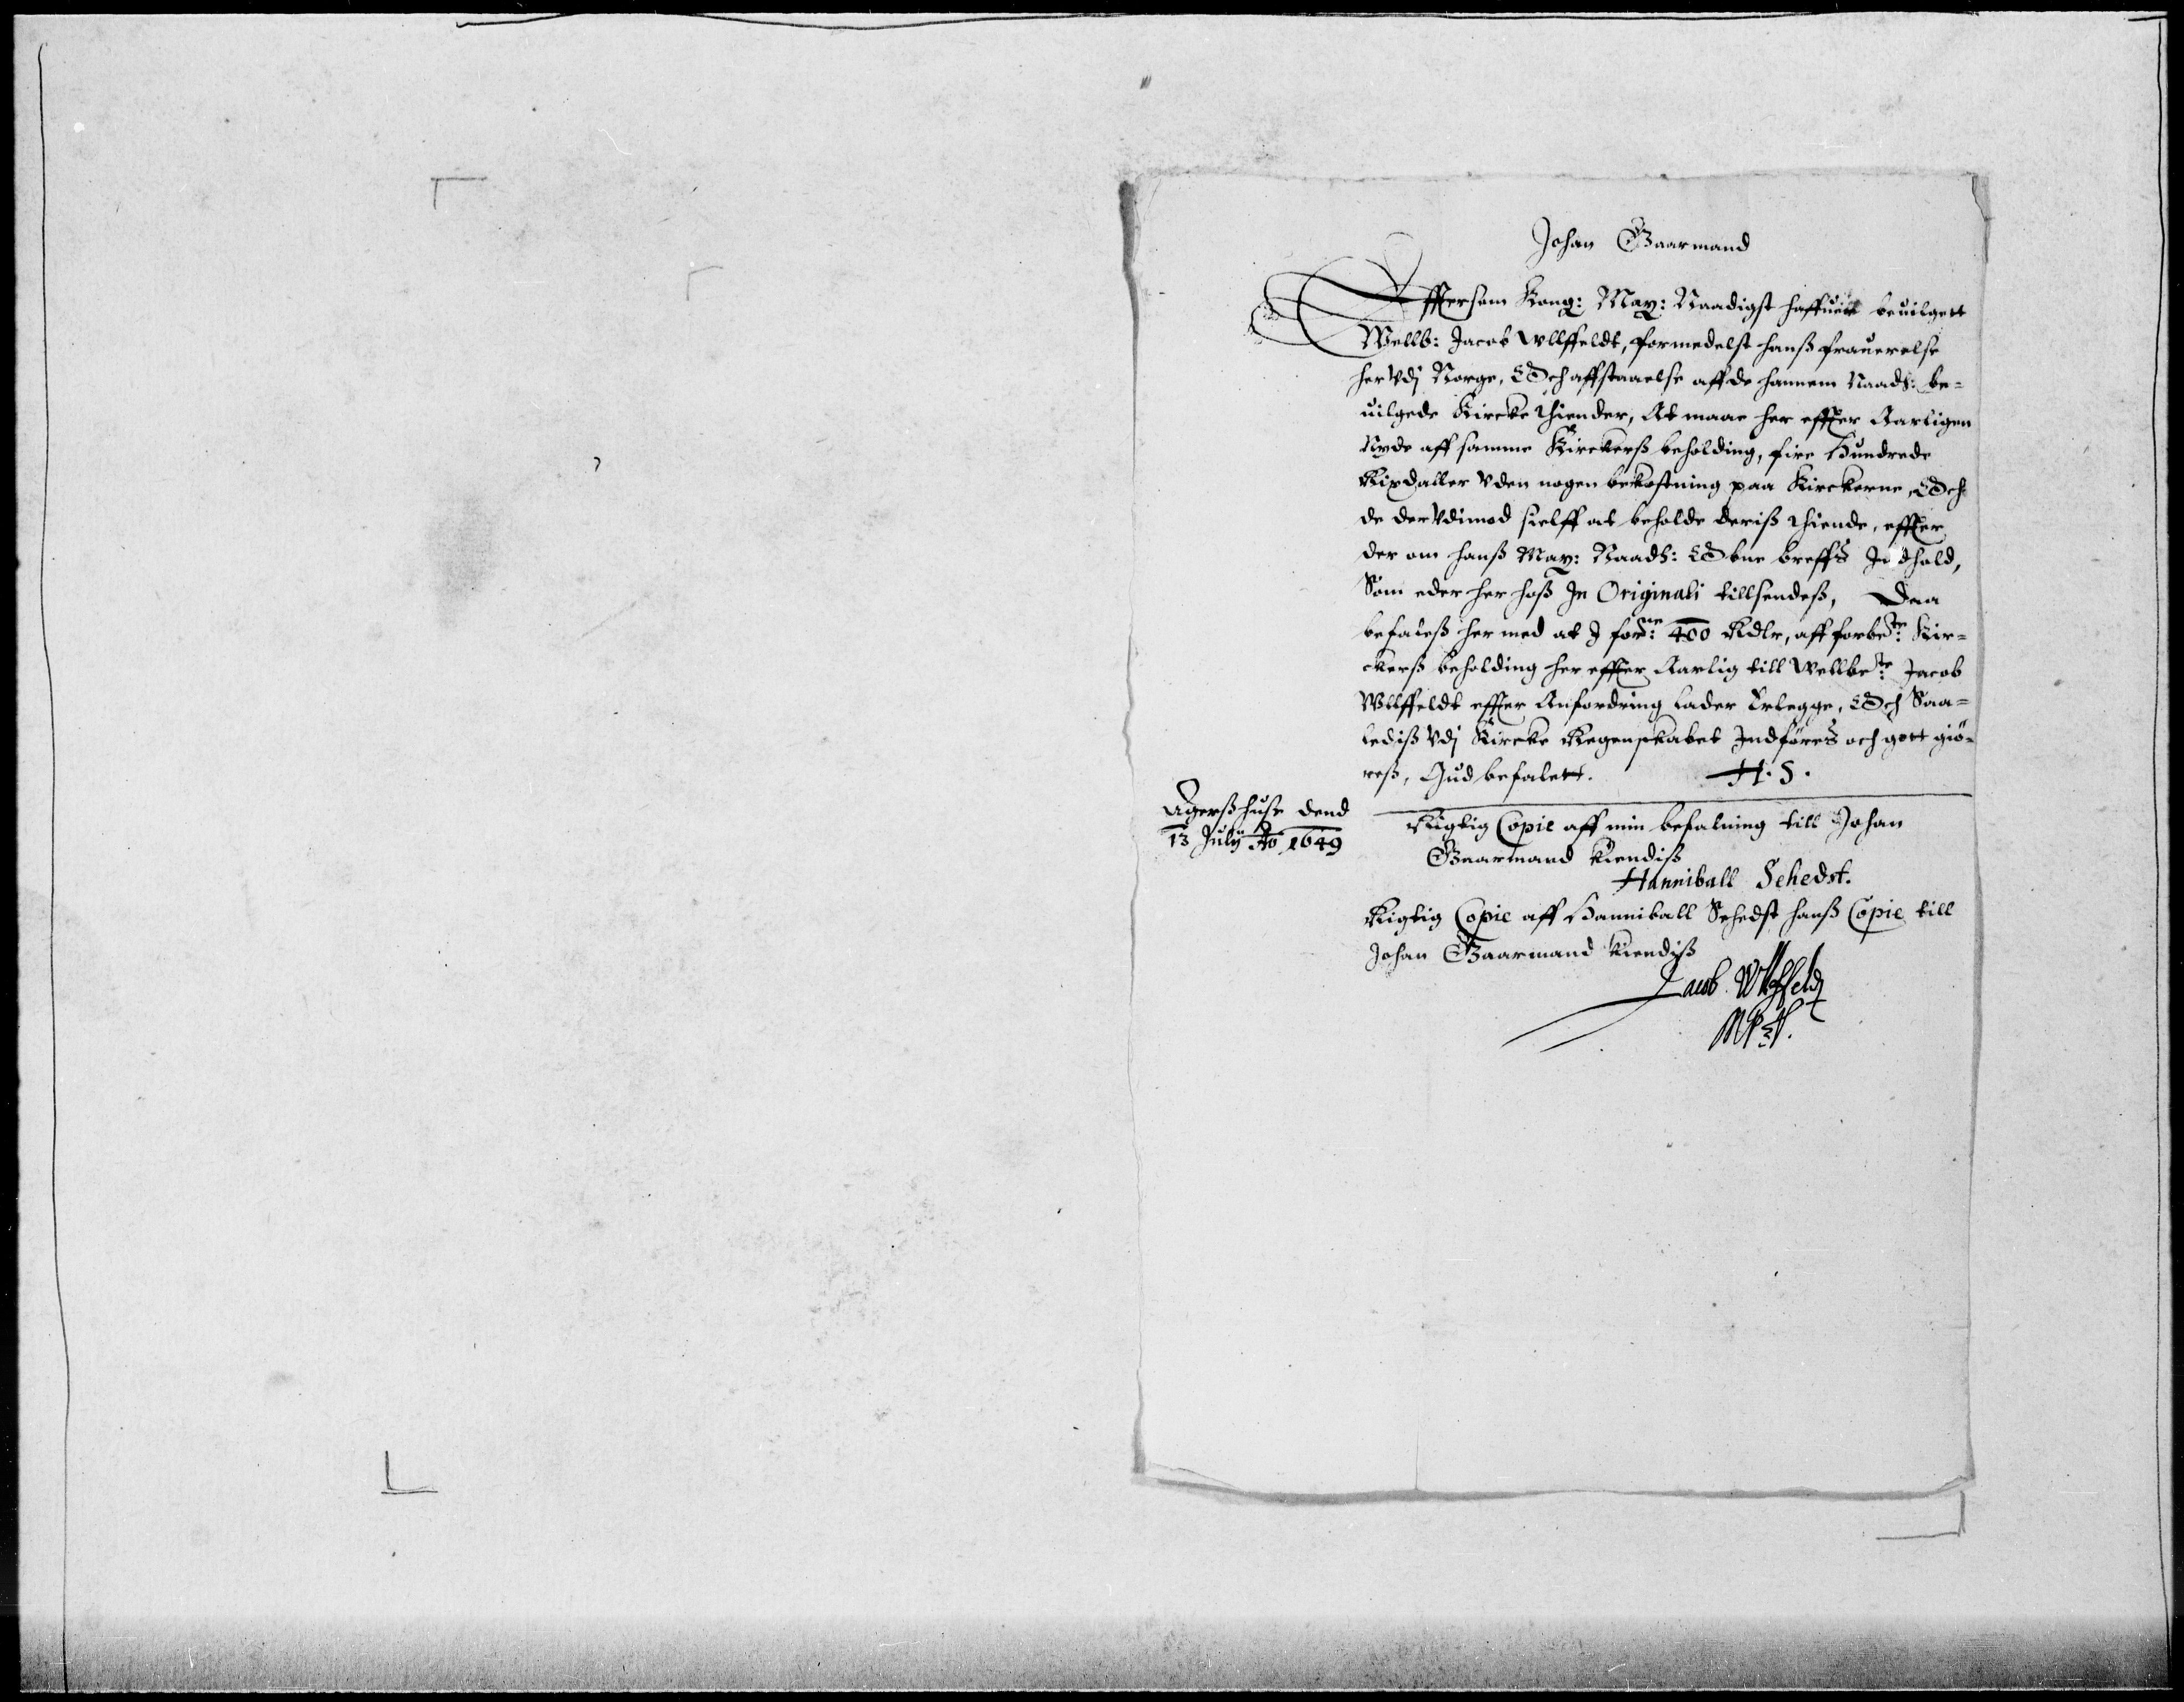 Johan Gaarmand
Efftersom Kong: May: Naadigst haffuer beuilgett
Wellb: Jacob Vllffeldt, formedelst hanß frauerelse
her Vdj Norge, Och affstaaelse aff de hannem Naads: be=
uilgede Kircke thiender, At maae her effter Aarligen
Nyde aff samme Kirckerß beholding, fire Hundrede
Rixdaller Vden nogen bekostning paa Kirckerne, Och
de der Vdimod sielff at beholde deriß thiende, effter
der om hanß May: Naads: Obne breffs Indhold,
Som eder her hoß In Originali tillsendeß, Daa
befaleß her med at I forne: 400 Rdlr, aff forbete: Kir=
ckerß beholding her effter Aarlig till Wellbete: Jacob
Vllffeldt effter Anfordring lader Erlegge, Och Saa=
lediß Vdj Kircke Regenskabet Indføres och gott giø=
reß, Gud befalett. H. S.
Agerßhuse dend
13 July Ao 1649
Rigtig Copie aff min befalning till Johan
Gaarmand Kiendiß
Hanniball Sehedst.
Rigtig Copie aff Hanniball Sehedst hanß Copie till
Johan Gaarmand Kiendiß
Jacob Vllffeldt